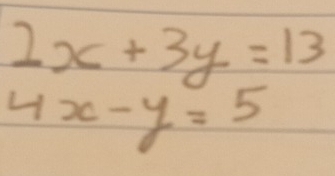 2x + 3y = 13
4x - y = 5